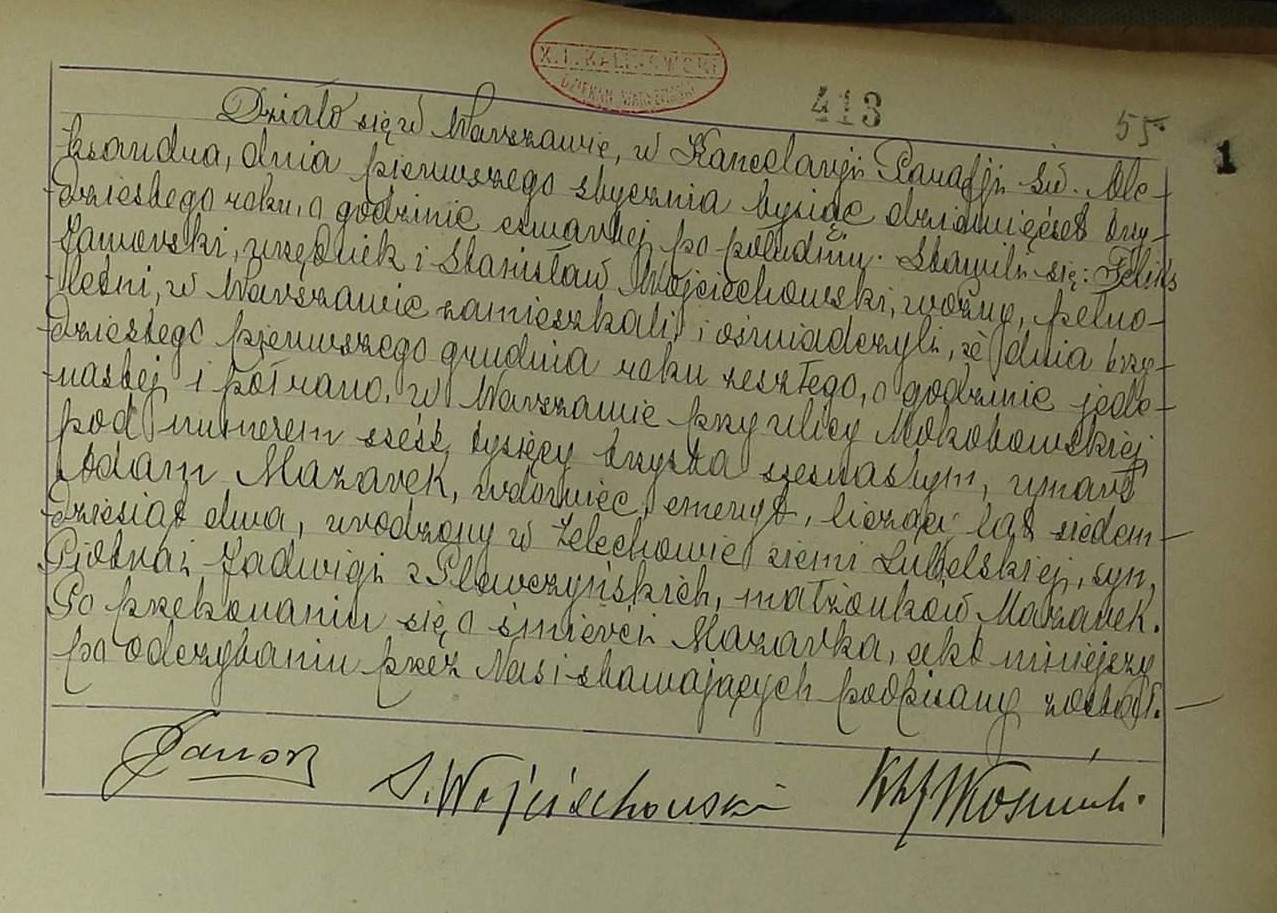 X.I. KALINOWSKI
DZIEKAN WARSZAWSKI
413
55
1
Działo się w Warszawie, w Kancelaryji Parafji św. Ale-
ksandra, dnia pierwszego stycznia tysiąc dziewięćset trzy-
dziestego roku, o godzinie czwartej po południu. Stawili się: Feliks
Jaworski, urzędnik i Stanisław Wojciechowski, woźny, pełno-
letni, w Warszawie zamieszkali i oświadczyli, że dnia trzy-
dziestego pierwszego grudnia roku zeszłego, o godzinie jede-
nastej i pół rano, w Warszawie przy ulicy Mokotowskiej
pod numerem sześć tysięcy trzysta szesnastym, umarł
Adam Mazarek, wdowiec, emeryt, liczący lat siedem-
dziesiąt dwa, urodzony w Żelechowie ziemi Lubelskiej, syn,
Piotra i Jadwigi z Pławczyńskich, małżonków Mazarek.
Po przekonaniu się o śmierci Mazarka, akt niniejszy
po odczytaniu przez Nas i stawających podpisany został.
S. Wojciechowski